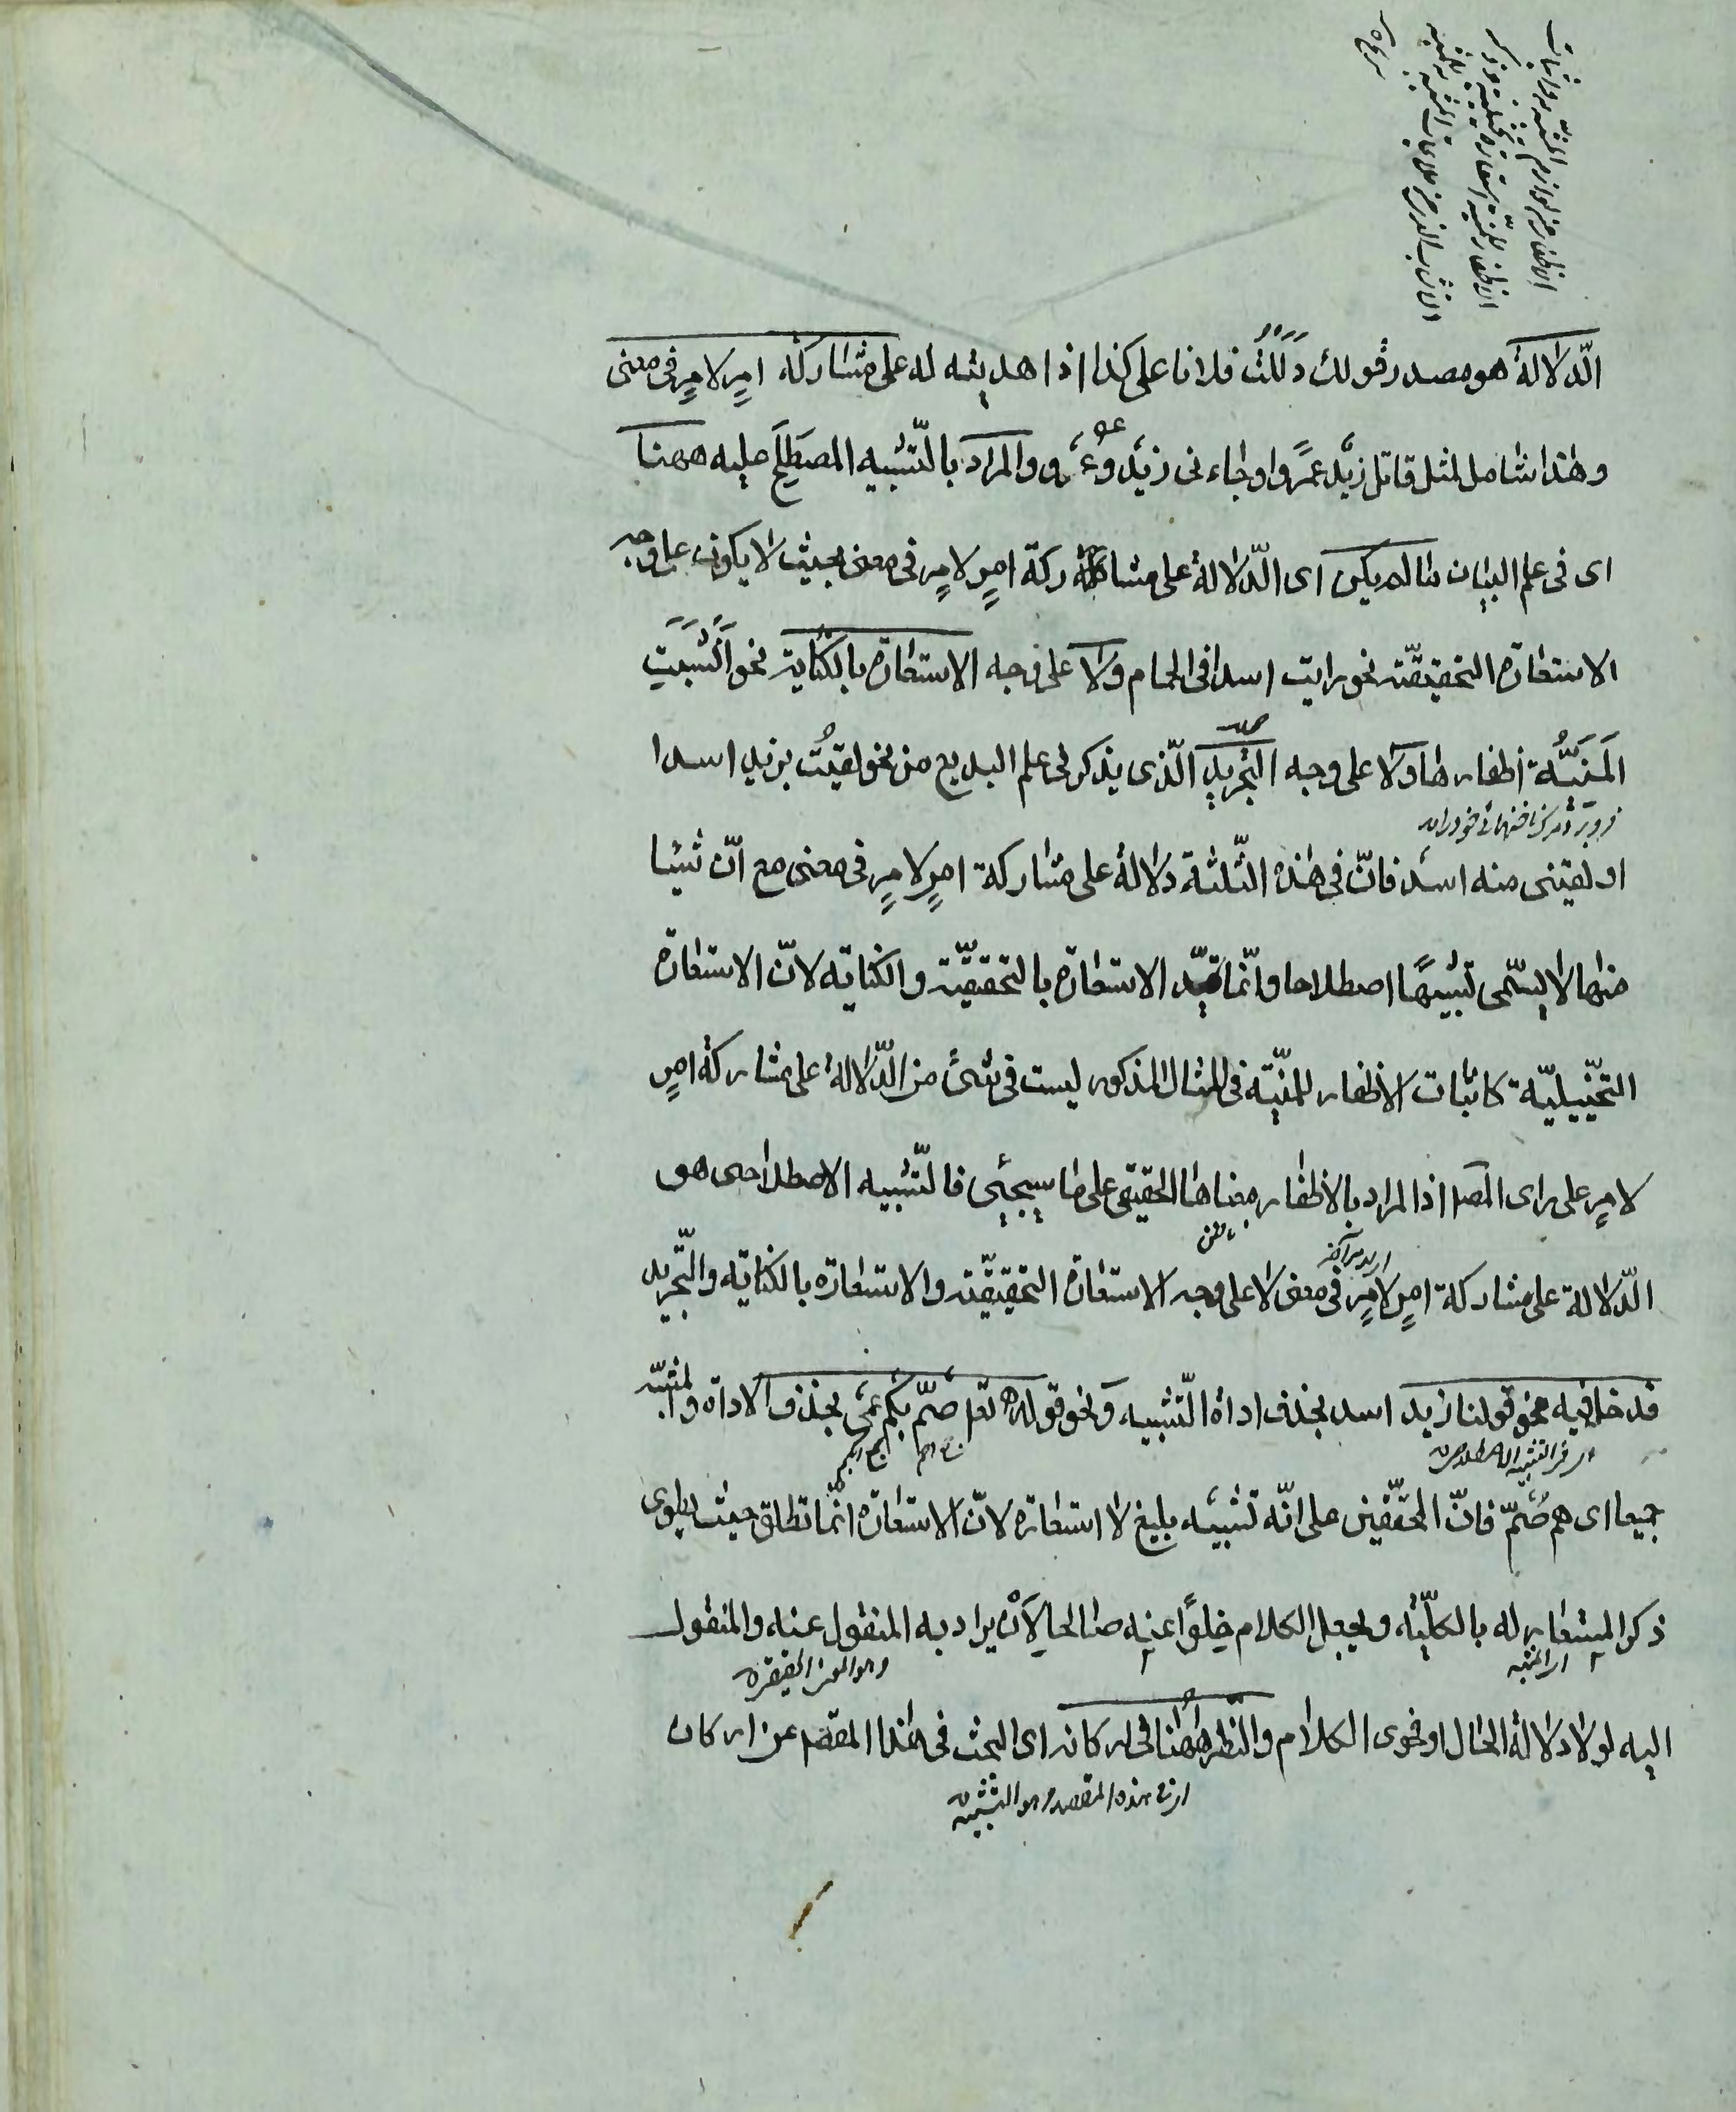 الدّلالة هو مصدر قولك دَلَلْتُ فلانا على كذا اذا هديته له على مشاركة امرٍ لامرٍ فى معنى
وهذا شامل لمثل قاتل زيد عمرًوا وجاءنى زيد وعمرو والمراد بالتّشبيه المصطلح عليه ههنا
اى فى علم البيان ما لم يكن اى الدّلالة على مشاركة امرٍ لامرٍ فى معنى بحيث لا يكون على وجه
الاستعارة التحقيقيّة نحو رايت اسدا فى الحمام ولا على وجه الاستعارة بالكناية نحو اَنْشَبَتِ
المَنيَّة اظفارها ولا على وجه التجريد الّذى يذكر فى علم البديع من نحو لقيتُ بزيد اسدا
او لقينى منه اسد فانّ فى هذه الثّلثة دلالة على مشاركة امرٍ لامرٍ فى معنى مع انّ شيئا
منها لا يسمّى تشبيهًا اصطلاحا وانّما قيّد الاستعارة بالتحقيقيّة والكناية لانّ الاستعارة
التخييليّة كاثبات الاظفار للمنيّة فى المثال المذكور ليست فى شئ من الدّلالة على مشاركة امرٍ
لامرٍ على راى المصـ اذ المراد بالاظفار معناها الحقيقى على ما سيجئى فالتّشبيه الاصطلاحى هو
الدّلالة على مشاركة امرٍ لامرٍ فى معنى لا على وجه الاستعارة التحقيقيّة والاستعارة بالكناية والتّجريد
فدخل فيه نحو قولنا زيد اسد بحذف اداة التّشبيه ونحو قوله تعـ صمّ بكم عمى بحذف الاداة والمشبّه
اى فى التشبيه الاصطلاحى
جميعا اى هم صمّ فانّ المحقّقين على انّه تشبيه بليغ لا استعارة لانّ الاستعارة انّما تطلق حيث يطوى
ذكر المستعار له بالكلّيّة ويجعل الكلام خلوًا عنه صالحا لاَنْ يراد به المنقول عنه والمنقول
اى المشبه وهو المعنى الحقيقى
اليه لولا دلالة الحال او فحوى الكلام والنّظر ههنا فى اركانه اى البحث فى هذا المقصد عن اركان
اى فى هذه المقصد وهو التشبيه